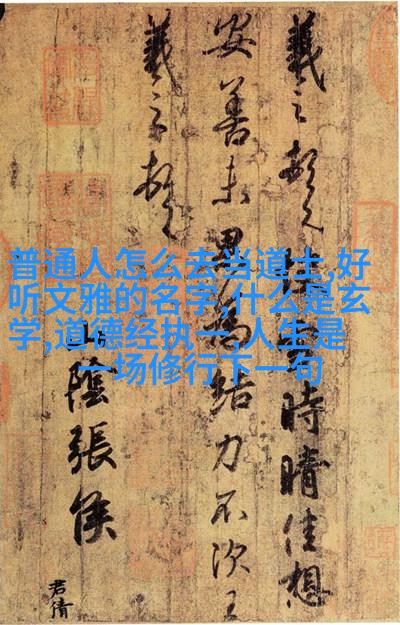 普通人怎么去当道士,好
听文雅的名字,什么是玄
学,道德经执一,人生是
一场修行下一句
羲之頓首快雪時晴佳想
安善未果為結力不次王
羲之頓首
山陰張侯
君倩